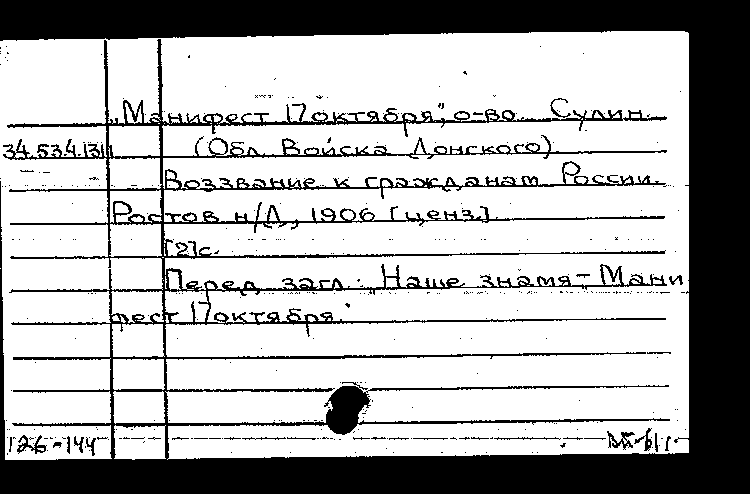 „Манифест 17 октября", о-во Сулин.
34.534.131 (Обл. Войска Донского)
Воззвание к гражданам России.
Ростов н/Д., 1906 [ценз.]
[2] с.
Перед загл.: Наше знамя - Мани
фест 17 октября.
126-144